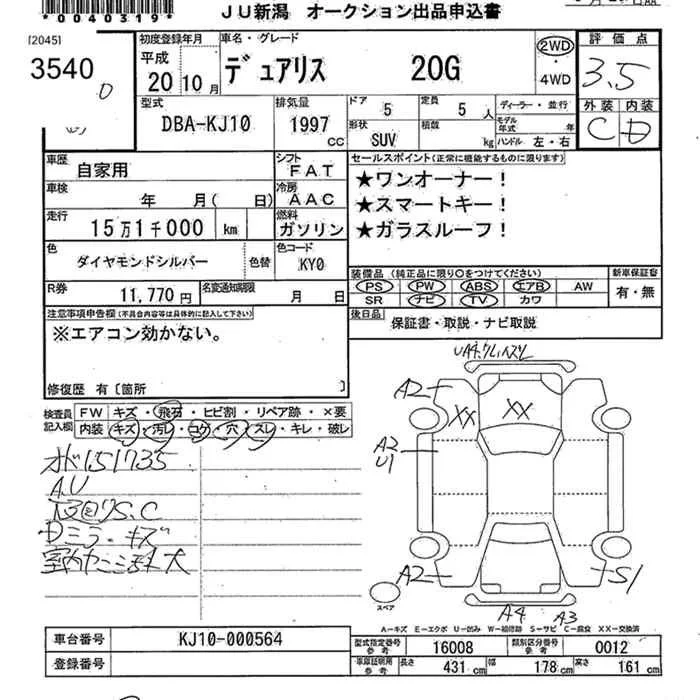 *0040319*
JU新潟 オークション出品申込書
[2045]
3540
0
初度登録年月
平成
20 10月
車名・グレード
デュアリス 20G
2WD
・
4WD
評価点
3.5
外装 内装
C D
型式
DBA-KJ10
排気量
1997
CC
ドア
5
定員
5 人
形状
SUV
積載
kg
ディーラー・並行
モデル年式 年
ハンドル 左・右
車歴
自家用
シフト
FAT
車検
年 月( 日)
冷房
AAC
走行
15万1千000 km
燃料
ガソリン
色
ダイヤモンドシルバー
色替
色コード
KY0
R券
11,770円
名変通知期限
月 日
セールスポイント(正常に機能するものに限ります)
★ワンオーナー!
★スマートキー!
★ガラスルーフ!
装備品 (純正品に限り○をつけてください)
新車保証書
PS PW ABS エアB AW
SR ナビ TV カワ
有・無
後日品
保証書・取説・ナビ取説
注意事項申告欄(不具合内容等は具体的に記入して下さい)
※エアコン効かない。
修復歴 有〔箇所 〕
検査員
記入欄
FW キズ・飛石・ヒビ割・リペア跡・×要
内装 キズ・汚レ・コゲ・穴・スレ・キレ・破レ
オド151735
A.U
S.C
Dミラーキズ
室内
大
UA4.
A2
XX
XX
A2
U1
A2
S1
A4
A3
スペア
A-キズ E-エクボ U-凹み W-補修跡 S-サビ C-腐食 XX-交換済
車台番号
KJ10-000564
登録番号
型式指定番号
参考
16008
類別区分番号
参考
0012
車庫証明用
参考
長さ
431 cm
幅
178 cm
高さ
161 cm